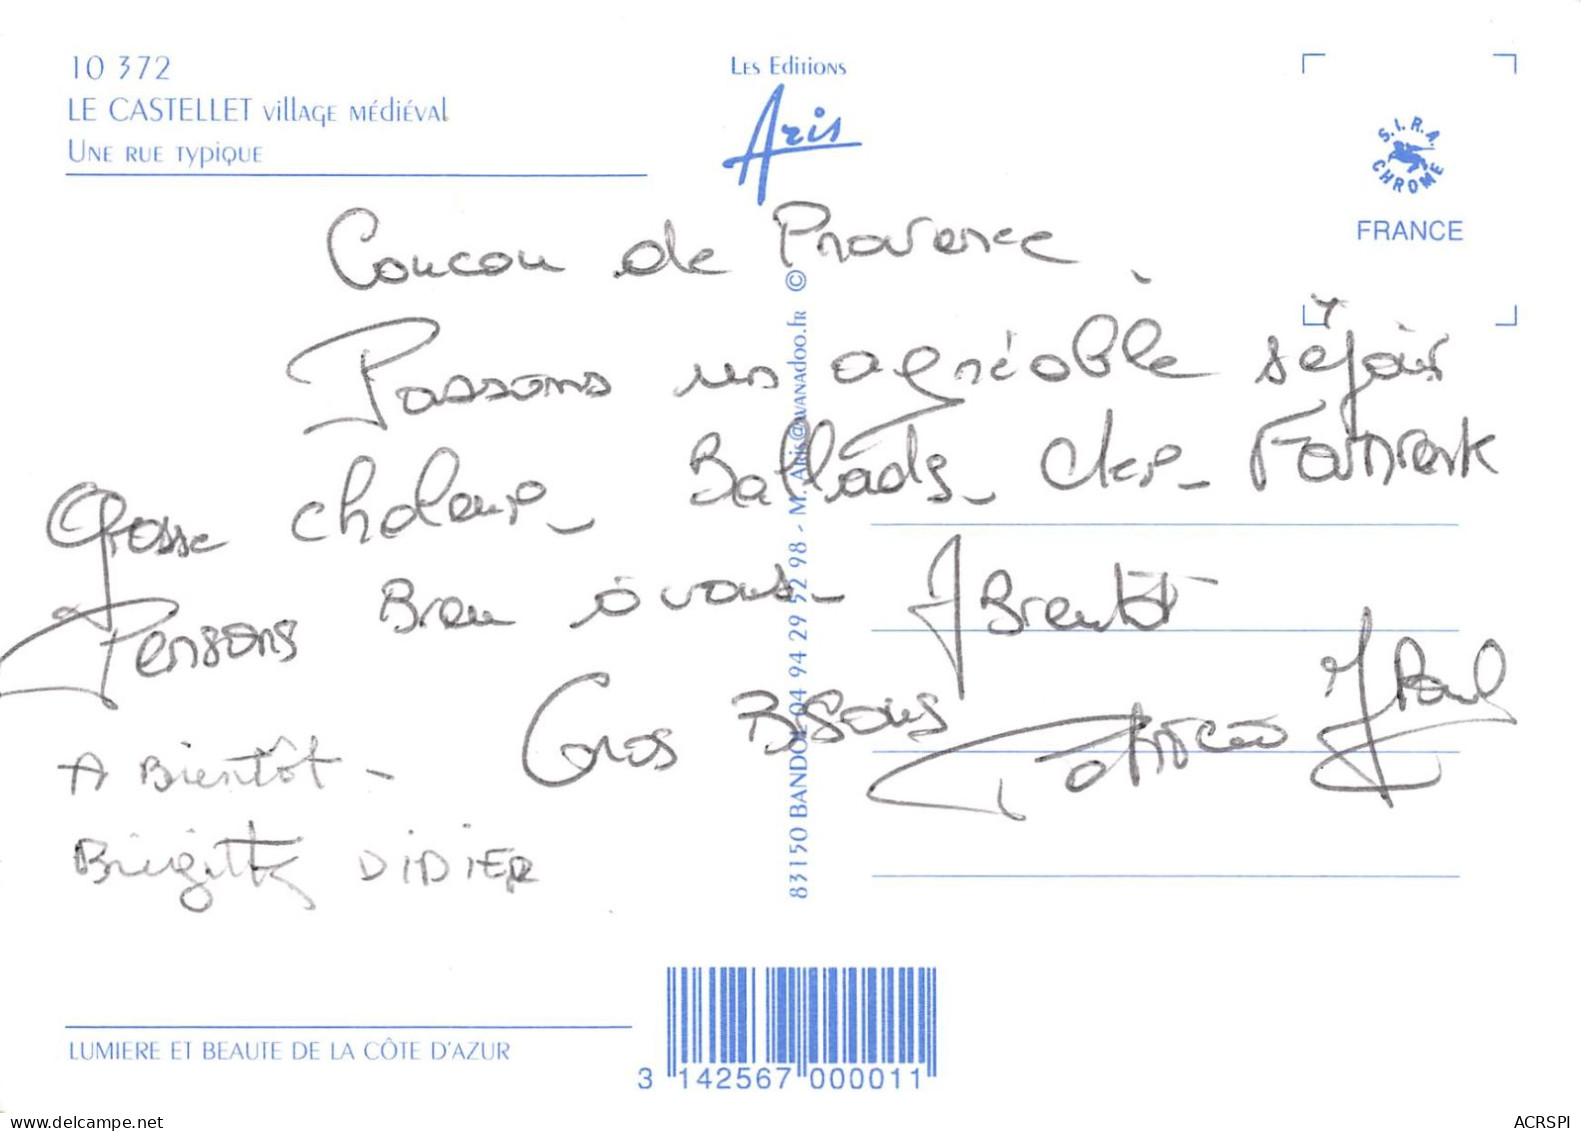 10 372
LE CASTELLET village médiéval
Une rue typique
Les Editions
Aris
S.I.R.A.
CHROME
FRANCE
Coucou de Provence.
Passons un agréable séjour
Grosse chaleur - Ballads -
Pensons Bien à vous -
A Bientôt
Gros Bisous
JPaul
A Bientôt -
Brigitte DIDIER
83150 BANDOL 04 94 29 52 98 - M. Aris@wanadoo.fr ©
LUMIERE ET BEAUTE DE LA CÔTE D'AZUR
3 142567 000011
ACRSPI